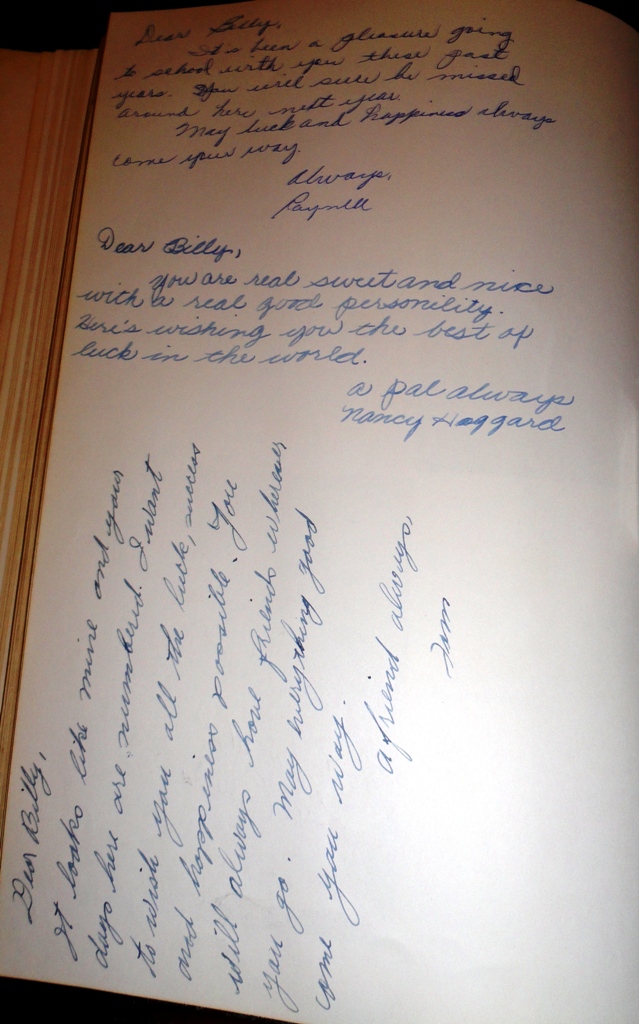 Dear Billy,
It's been a pleasure going
to school with you these past
years. You will sure be missed
around here next year.
May luck and happiness always
come your way.
Always,
Raynell
Dear Billy,
you are real sweet and nice
with a real good personility.
Here's wishing you the best of
luck in the world.
a pal always
Nancy Haggard
Dear Billy,
It looks like mine and your
days here are numbered. I want
to wish you all the luck, success
and happiness possible. You
will always have friends wherever
you go. May everything good
come you way.
a friend always,